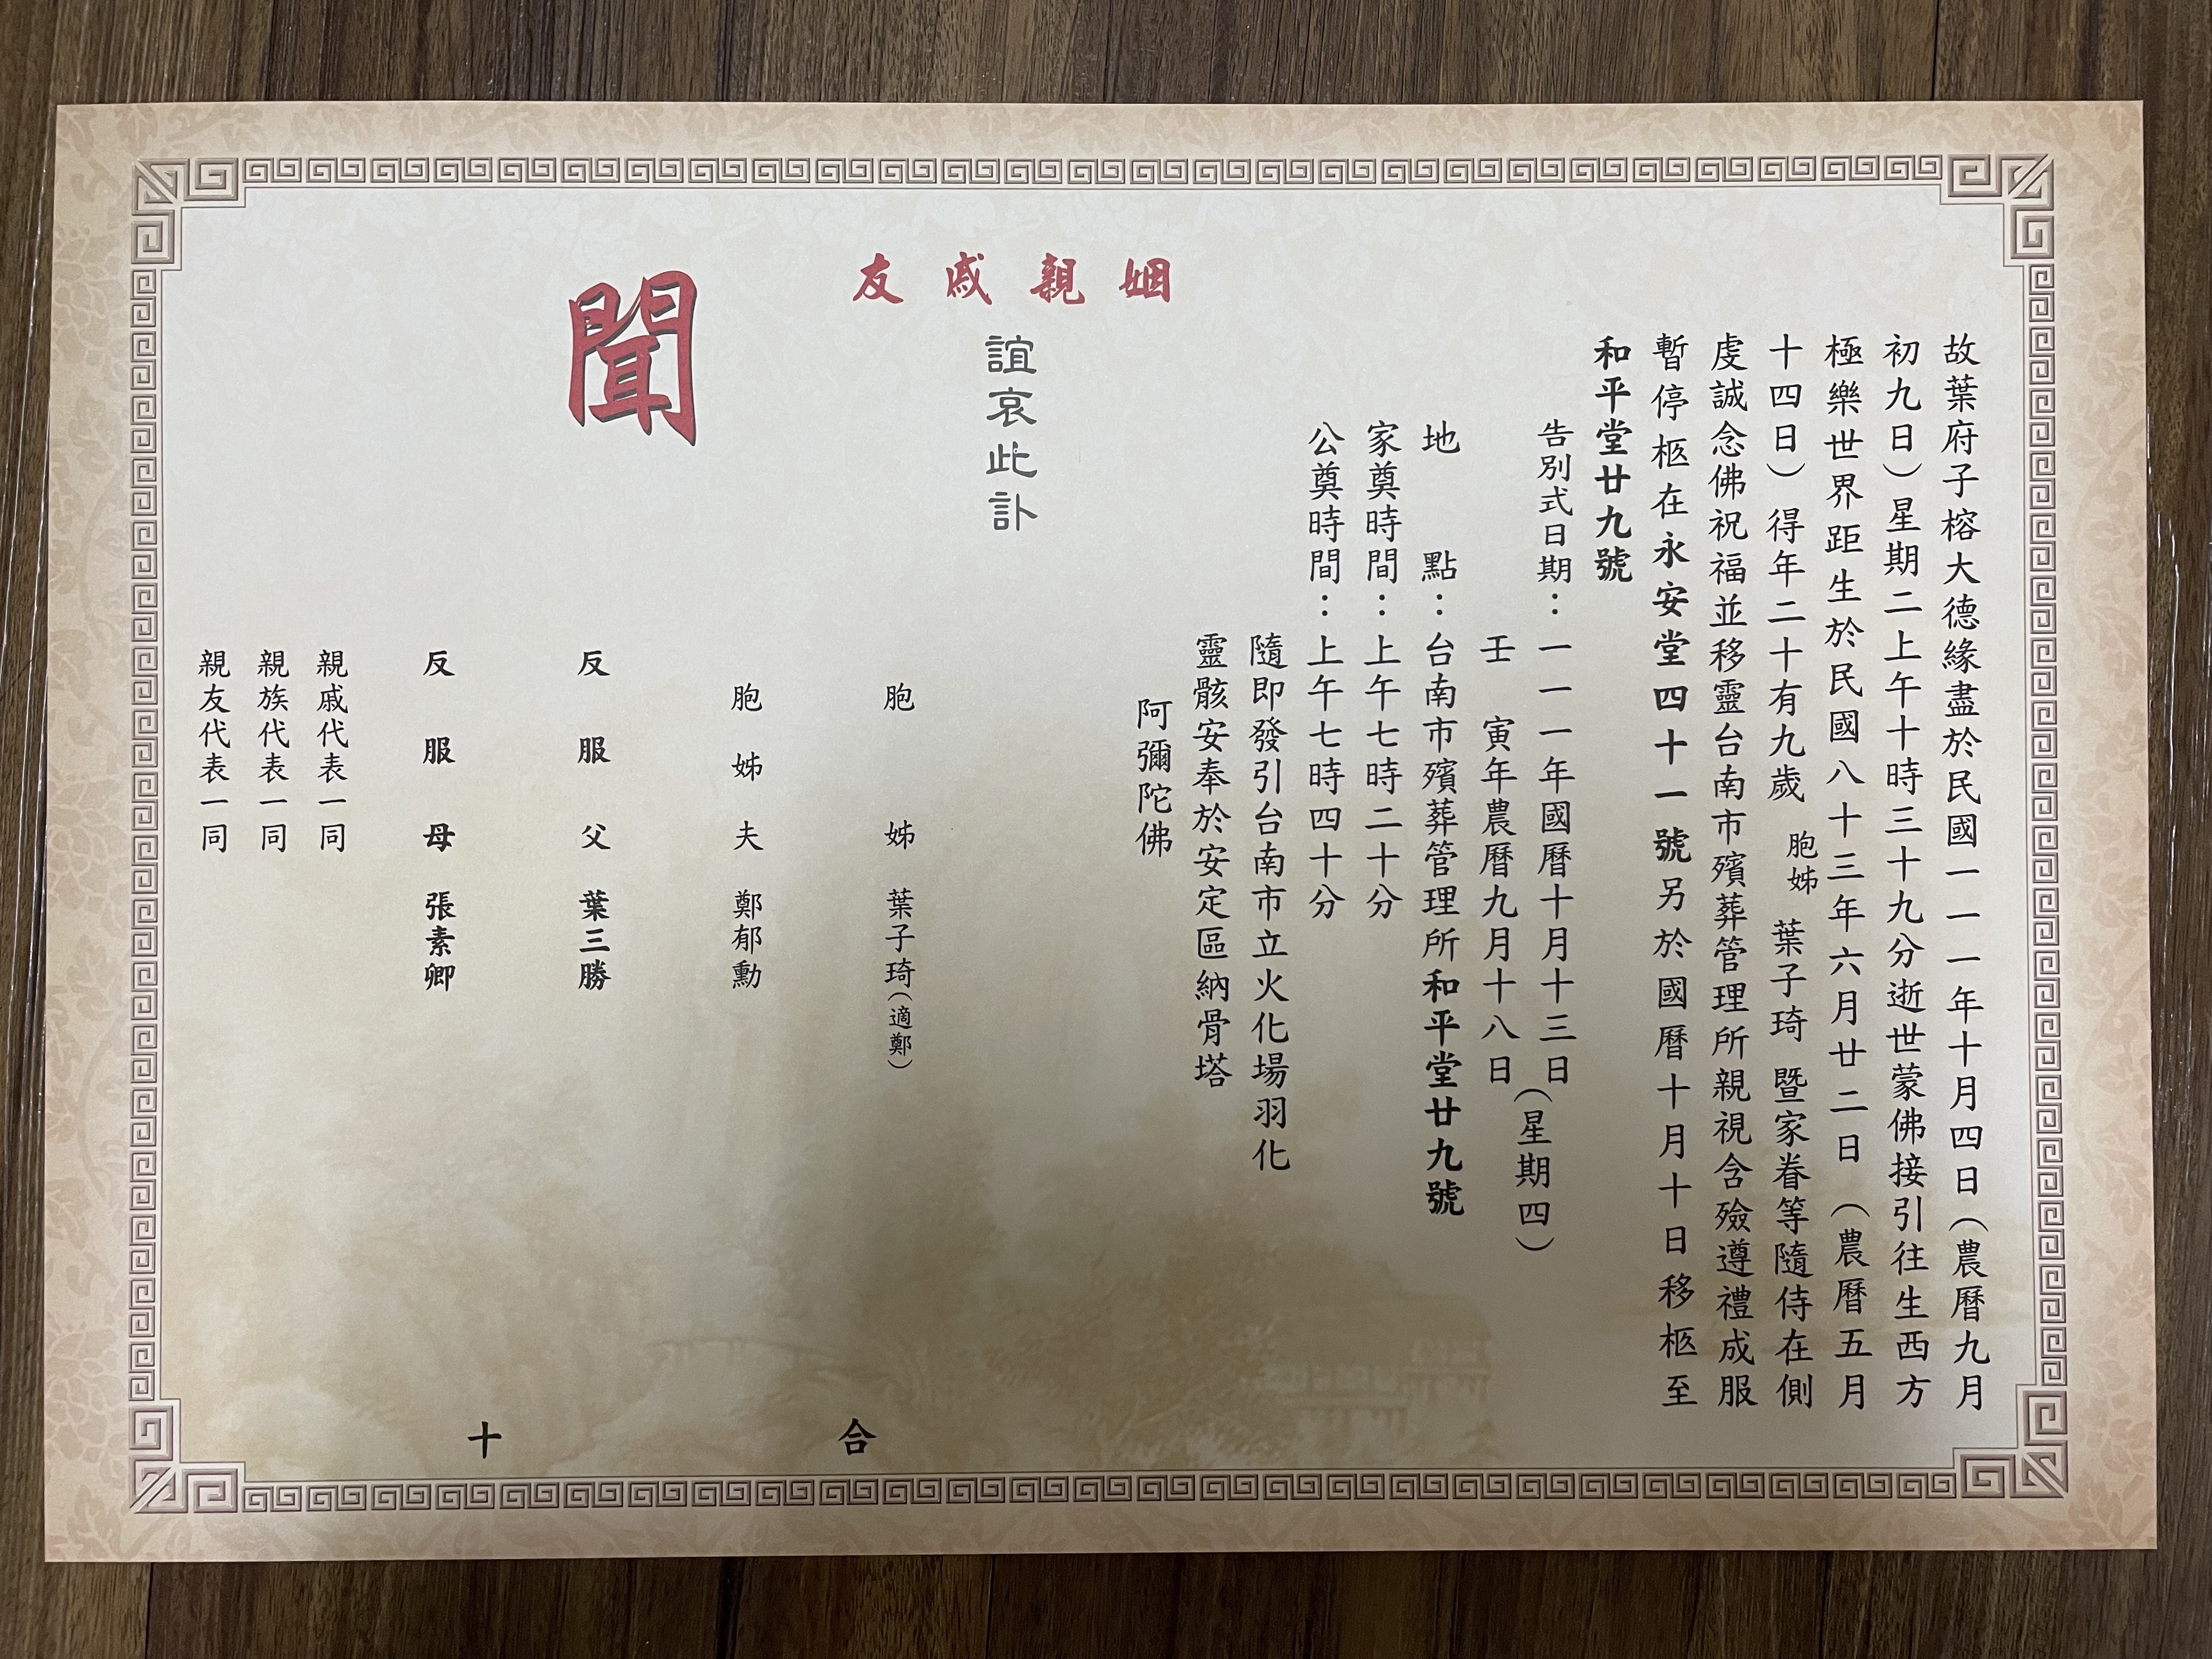 故葉府子榕大德緣盡於民國一一一年十月四日（農曆九月
初九日）星期二上午十時三十九分逝世蒙佛接引往生西方
極樂世界距生於民國八十三年六月廿二日（農曆五月
十四日）得年二十有九歲 胞姊 葉子琦 暨家眷等隨侍在側
虔誠念佛祝福並移靈台南市殯葬管理所親視含殮遵禮成服
暫停柩在永安堂四十一號另於國曆十月十日移柩至
和平堂廿九號
告別式日期：一一一年國曆十月十三日
壬寅年農曆九月十八日
（星期四）
地點：台南市殯葬管理所和平堂廿九號
家奠時間：上午七時二十分
公奠時間：上午七時四十分
隨即發引台南市立火化場羽化
靈骸安奉於安定區納骨塔
阿彌陀佛
姻親戚友
誼哀此訃
聞
胞姊 葉子琦（適鄭）
胞姊夫 鄭郁勳
反服父 葉三勝
反服母 張素卿
親戚代表一同
親族代表一同
親友代表一同
合十